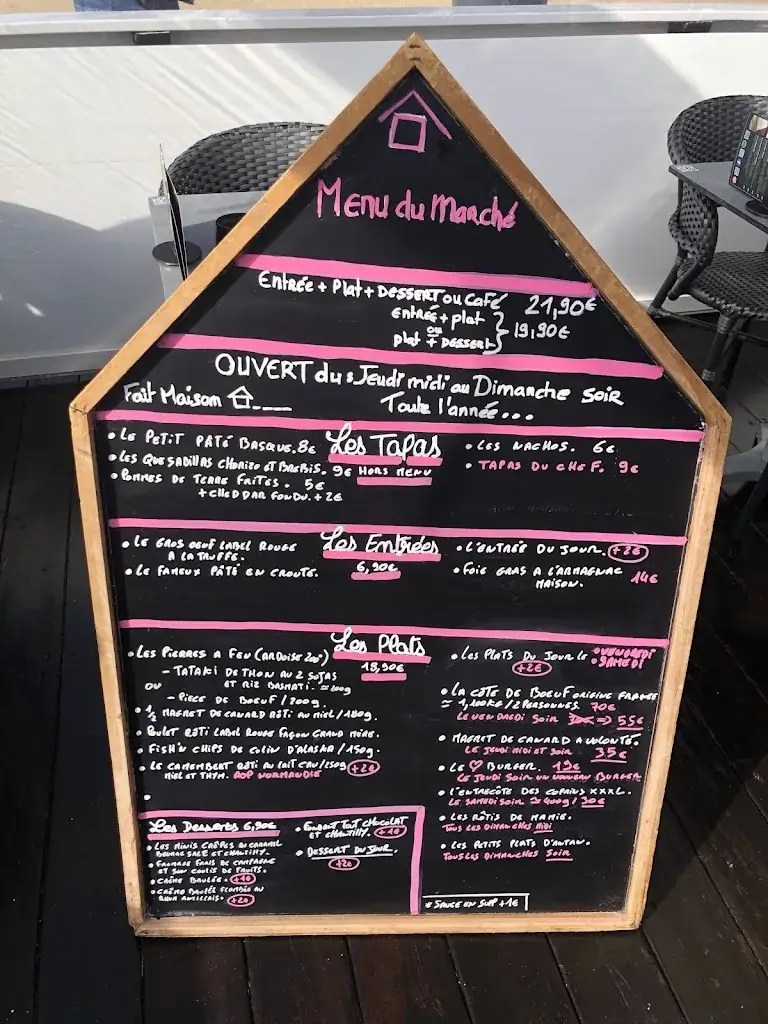 Menu du Marché
Entrée + Plat + DESSERT ou Café 21,90€
Entrée + plat
ou
plat + DESSERT
} 19,90€
OUVERT du : Jeudi midi au Dimanche soir
Toute l'année...
Fait Maison
Les Tapas
HORS MENU
• LE PETIT PATÉ BASQUE. 8€
• LES QUESADILLAS CHORIZO ET BREBIS. 9€
• POMMES DE TERRE FRITES. 5€
+ CHEDDAR FONDU. + 2€
• LES NACHOS. 6€
• TAPAS DU CHEF. 9€
Les Entrées
6,90€
• LE GROS OEUF LABEL ROUGE
A LA TRUFFE.
• LE FAMEUX PÂTÉ EN CROUTE.
• L'ENTRÉE DU JOUR. +2€
• FOIE GRAS A L'ARMAGNAC 14€
MAISON.
Les Plats
18,90€
• LES PIERRES A FEU (ARDOISE 200°)
- TATAKI DE THON AU 2 SOJAS
ET RIZ BASMATI. ≃ 200g
OU
- PIECE DE BOEUF / 200g.
• 1/2 MAGRET DE CANARD RÔTI AU MIEL / 180g.
• POULET RÔTI LABEL ROUGE FAÇON GRAND MÈRE.
• FISH'N CHIPS DE COLIN D'ALASKA / 150g.
• LE CAMEMBERT RÔTI AU LAIT CRU / 250g +2€
MIEL ET THYM. AOP NORMANDIE
•
• LES PLATS DU JOUR LE • VENDREDI
• SAMEDI
+2€
• LA CÔTE DE BOEUF ORIGINE FRANCE
≃ 1,100KG / 2 PERSONNES. 70€
LE VENDREDI SOIR 70€ => 55€
• MAGRET DE CANARD A VOLONTÉ.
LE JEUDI MIDI ET SOIR 35€
• LE ♡ BURGER. 19€
LE JEUDI SOIR UN NOUVEAU BURGER
• L'ENTRECÔTE DES COPAINS XXXL.
LE SAMEDI SOIR ≃ 400g / 30€
• LES RÔTIS DE MAMIE.
TOUS LES DIMANCHES MIDI
• LES PETITS PLATS D'ANTAN.
TOUS LES DIMANCHES SOIR
Les Desserts 6,90€
• LES MINIS CRÊPES AU CARAMEL
BEURRE SALÉ ET CHANTILLY.
• FROMAGE FRAIS DE CAMPAGNE
ET SON COULIS DE FRUITS.
• CRÈME BRULÉE. +1€
• CRÈME BRULÉE FLAMBÉE AU
RHUM ANTILLAIS. +2€
• FONDANT TOUT CHOCOLAT
ET CHANTILLY. +1€
• DESSERT DU JOUR.
+2€
* SAUCE EN SUPP +1€